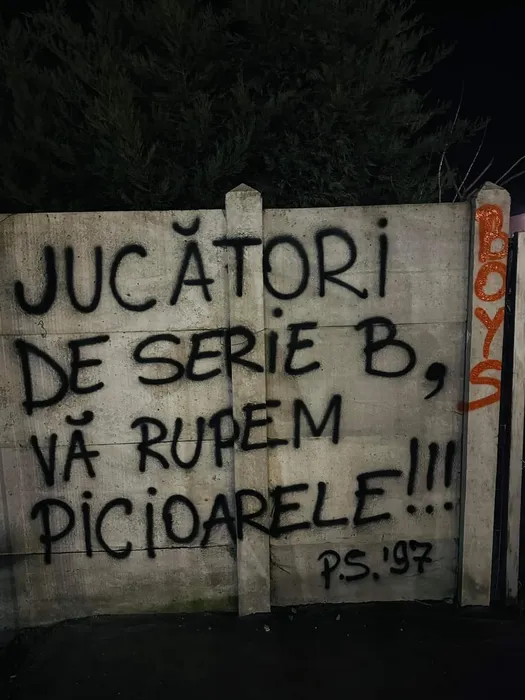 JUCĂTORi
DE SERiE B,
VĂ RUPEM
PiCiOARELE!!!
P.S. '97
BOYS